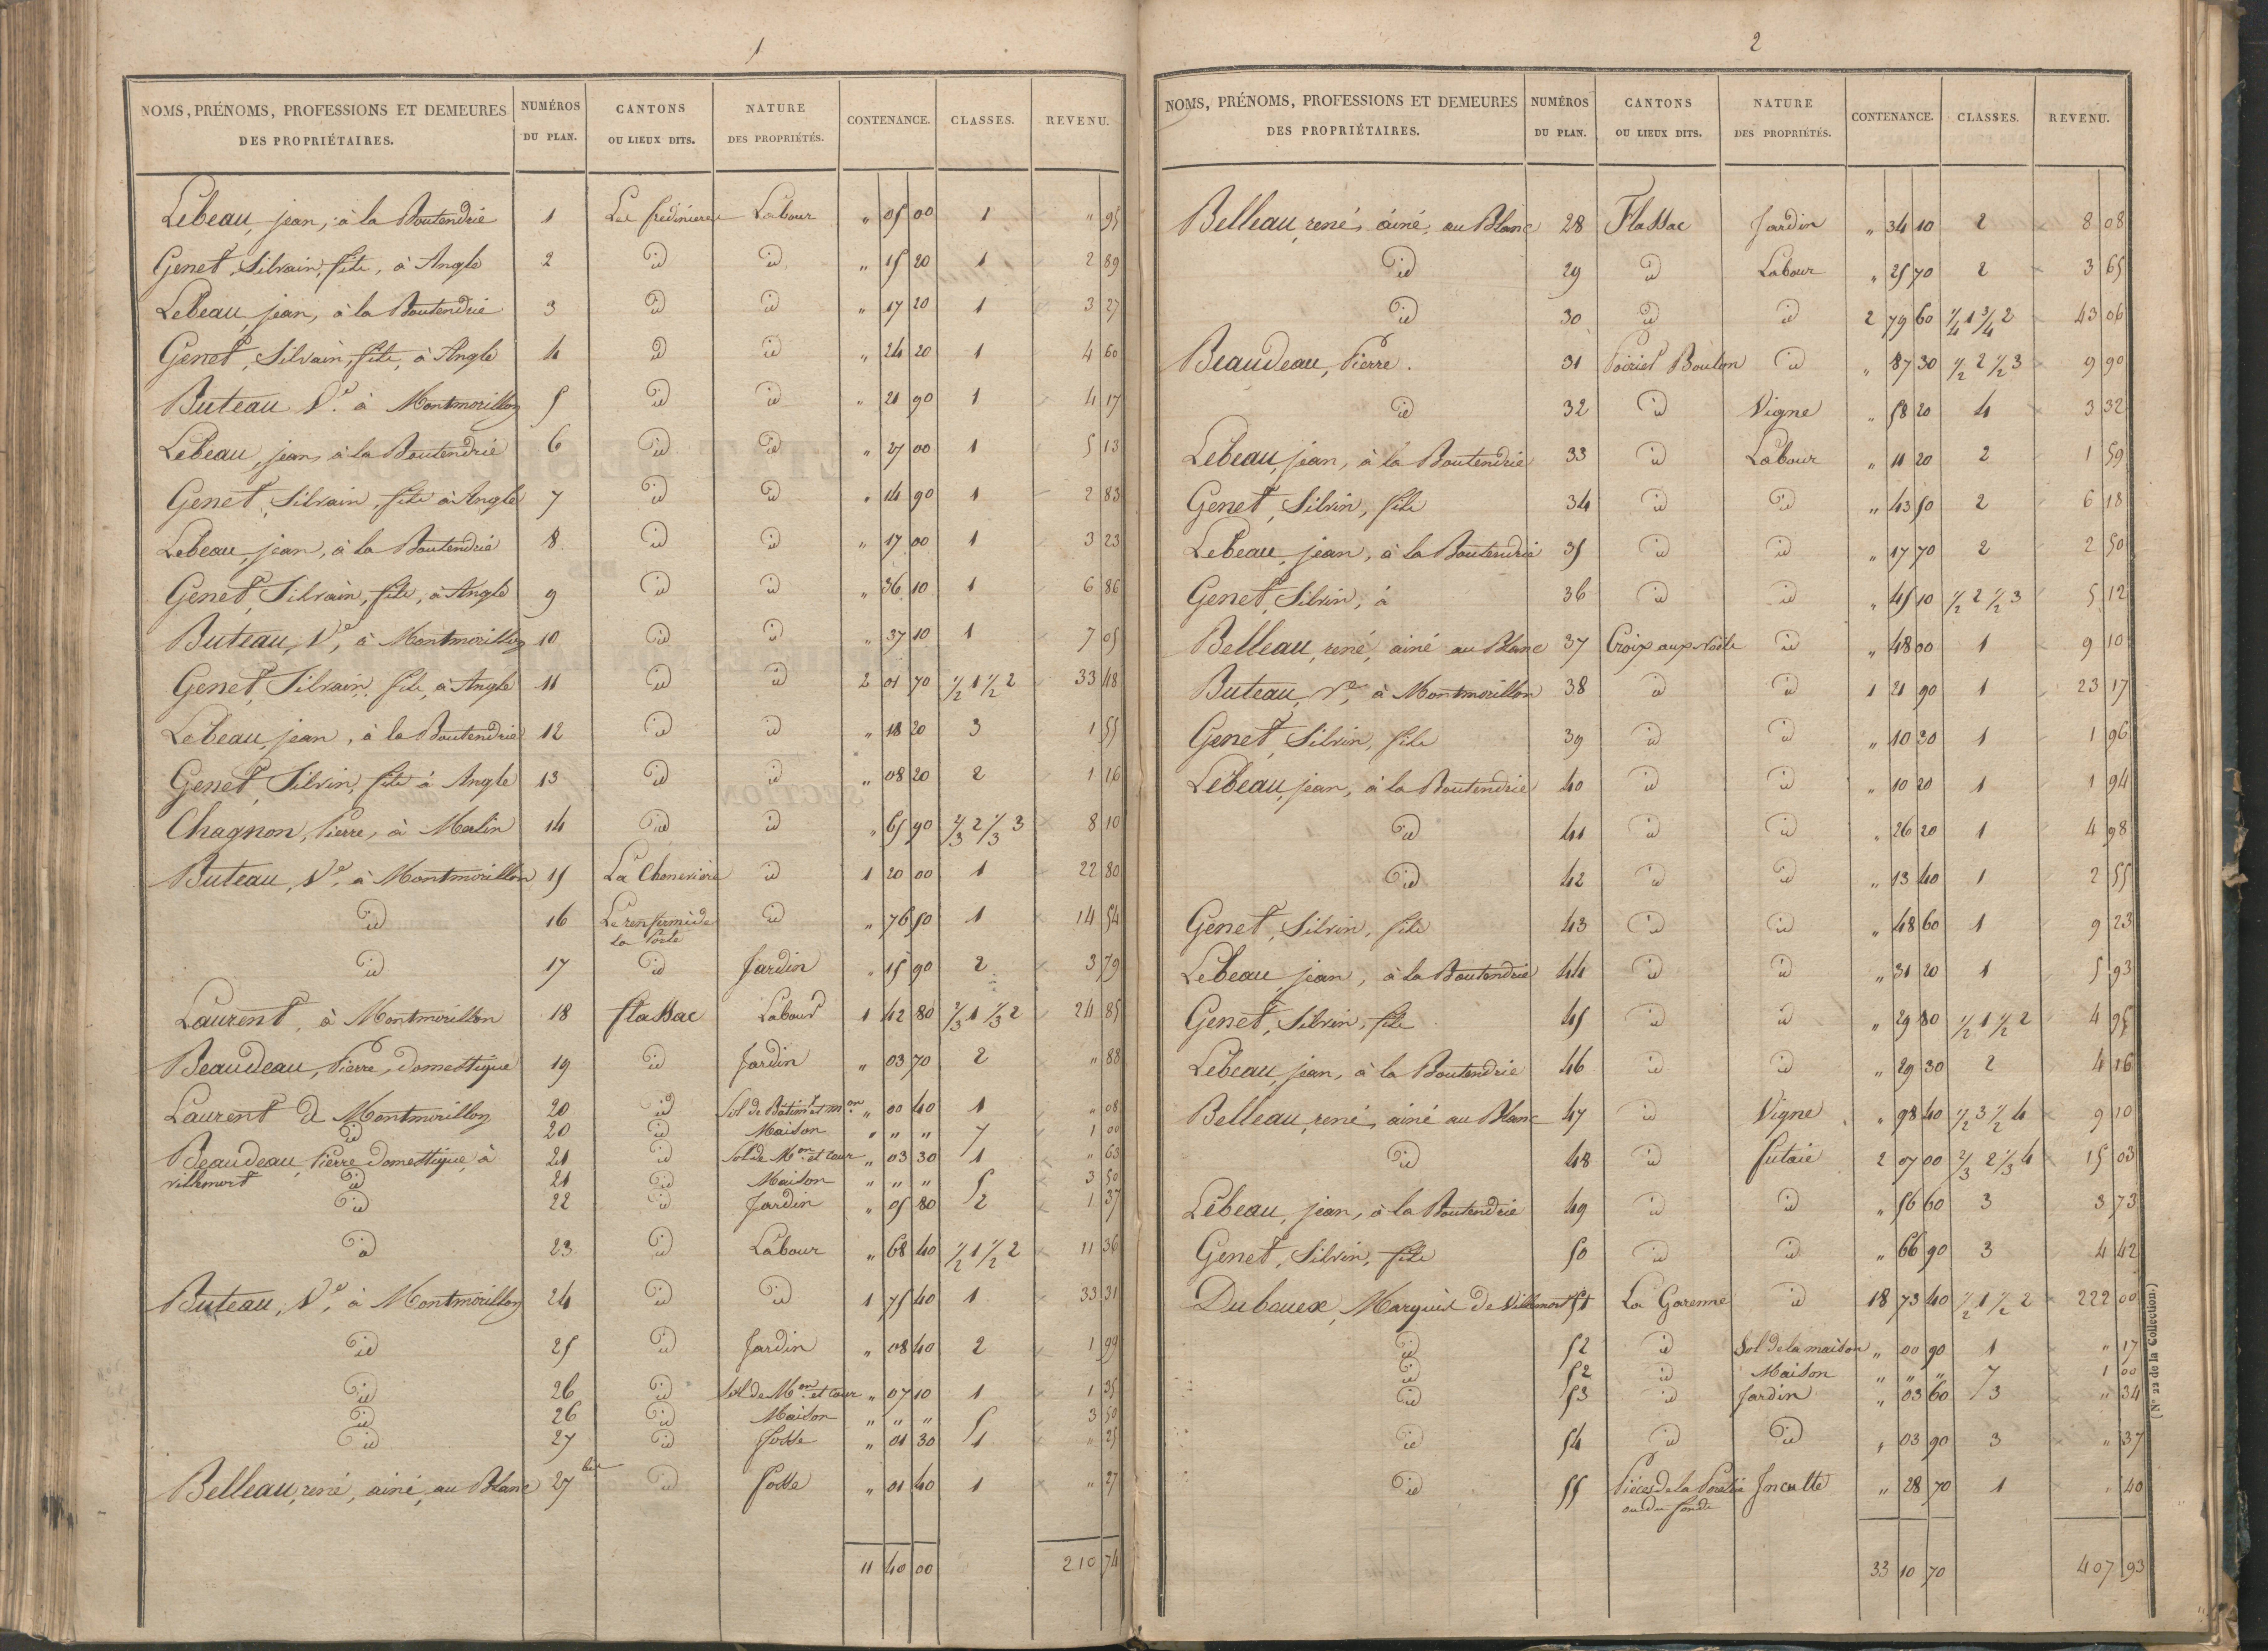 1
NOMS, PRÉNOMS, PROFESSIONS ET DEMEURES DES PROPRIÉTAIRES. NUMÉROS DU PLAN. CANTONS OU LIEUX DITS. NATURE DES PROPRIÉTÉS. CONTENANCE. CLASSES. REVENU.
Lebeau, jean, à la Boutendrie 1 Labour " 05 00 1 " 95
Genet, Silvain, fils, à Angle 2 id id " 15 20 1 2 89
Lebeau, jean, à la Boutendrie 3 id id " 17 20 1 3 27
Genet, Silvain, fils, à Angle 4 id id " 24 20 1 4 60
Buteau Ve. à Montmorillon 5 id id " 21 90 1 4 17
Lebeau, jean, à la Boutendrie 6 id id " 27 00 1 5 13
Genet, Silvain, fils à Angle 7 id id " 14 90 1 2 83
Lebeau, jean, à la Boutendrie 8 id id " 17 00 1 3 23
Genet, Silvain, fils, à Angle 9 id id " 36 10 1 6 86
Buteau, Ve, à Montmorillon 10 id id " 37 10 1 7 05
Genet, Silvain, fils, à Angle 11 id id 2 01 70 1/2 1 1/2 2 33 48
Lebeau, jean, à la Boutendrie 12 id id " 18 20 3 1 55
Genet, Silvin, fils à Angle 13 id id " 08 20 2 1 16
Chagnon, Pierre, à Merlin 14 id id " 65 90 2/3 2 1/3 3 8 10
Buteau, Ve, à Montmorillon 15 La Cheneviere id 1 20 00 1 22 80
id 16 Le renfermé de la Porte id " 76 50 1 14 54
id 17 id Jardin " 15 90 2 3 79
Laurent, à Montmorillon 18 flassac Labour 1 42 80 2/3 1 1/3 2 24 85
Beaudeau, Pierre, domestique 19 id Jardin " 03 70 2 " 88
Laurent de Montmorillon 20 id Sol de Batimt et mon " 00 40 1 " 08
id 20 id Maison " " " 7 1 00
Beaudeau, Pierre domestique à 21 id Sol de Mon et cour " 03 30 1 " 63
villemort id 21 id Maison " " " 5 3 50
id 22 id Jardin " 05 80 2 1 37
id 23 id Labour " 68 40 1/2 1 1/2 2 11 36
Buteau, Ve, à Montmorillon 24 id id 1 75 40 1 33 31
id 25 id Jardin " 08 40 2 1 99
id 26 id Sol de Mon et cour " 07 10 1 1 35
id 26 id Maison " " " 5 3 50
id 27 id fosse " 01 30 1 " 25
Belleau, rené, ainé, au Blanc 27 bis id fosse " 01 40 1 " 27
11 40 00 210 74
2
NOMS, PRÉNOMS, PROFESSIONS ET DEMEURES DES PROPRIÉTAIRES. NUMÉROS DU PLAN. CANTONS OU LIEUX DITS. NATURE DES PROPRIÉTÉS. CONTENANCE. CLASSES. REVENU.
Belleau, rené, ainé, au Blanc 28 Flassac Jardin " 34 10 2 8 08
id 29 id Labour " 25 70 2 3 65
id 30 id id 2 79 60 1/4 1 3/4 2 43 06
Beaudeau, Pierre. 31 Poirier Boulon id " 87 30 1/2 2 1/2 3 9 90
id 32 id Vigne " 58 20 4 3 32
Lebeau, jean, à la Boutendrie 33 id Labour " 11 20 2 1 59
Genet, Silvin, fils 34 id id " 43 50 2 6 18
Lebeau, jean, à la Boutendrie 35 id id " 17 70 2 2 50
Genet, Silvin, à 36 id id " 45 10 1/2 2 1/2 3 5 12
Belleau, rené, ainé au Blanc 37 Croix aux id " 48 00 1 9 10
Buteau, Ve, à Montmorillon 38 id id 1 21 90 1 23 17
Genet, Silvin, fils 39 id id " 10 30 1 1 96
Lebeau, jean, à la Boutendrie 40 id id " 10 20 1 1 94
id 41 id id " 26 20 1 4 98
id 42 id id " 13 40 1 2 55
Genet, Silvin, fils 43 id id " 48 60 1 9 23
Lebeau, jean, à la Boutendrie 44 id id " 31 20 1 5 93
Genet, Silvin, fils 45 id id " 29 80 1/2 1 1/2 2 4 95
Lebeau, jean, à la Boutendrie 46 id id " 29 30 2 4 16
Belleau, rené, ainé au Blanc 47 id Vigne " 98 40 1/2 3 1/2 4 9 10
id 48 id futaie 2 07 00 2/3 2 1/3 4 15 03
Lebeau, jean, à la Boutendrie 49 id id " 56 60 3 3 73
Genet, Silvin, fils 50 id id " 66 90 3 4 42
Dubouex, Marquis de Villemort 51 La Garenne id 18 73 40 1/2 1 1/2 2 222 00
id 52 id Sol de la maison " 00 90 1 " 17
id 52 id Maison " " " 7 1 00
id 53 id Jardin " 03 60 3 " 34
id 54 id id " 03 90 3 " 37
id 55 Pièces de la ou du Inculte " 28 70 1 " 40
33 10 70 407 93
(N° 22 de la Collection.)